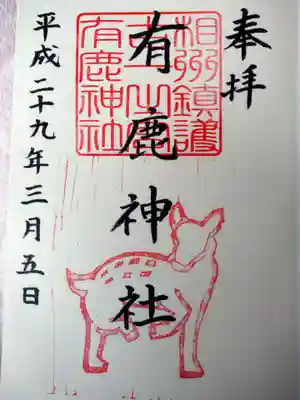 奉拝
有鹿神社
平成二十九年三月五日
相州鎮護
有鹿神社